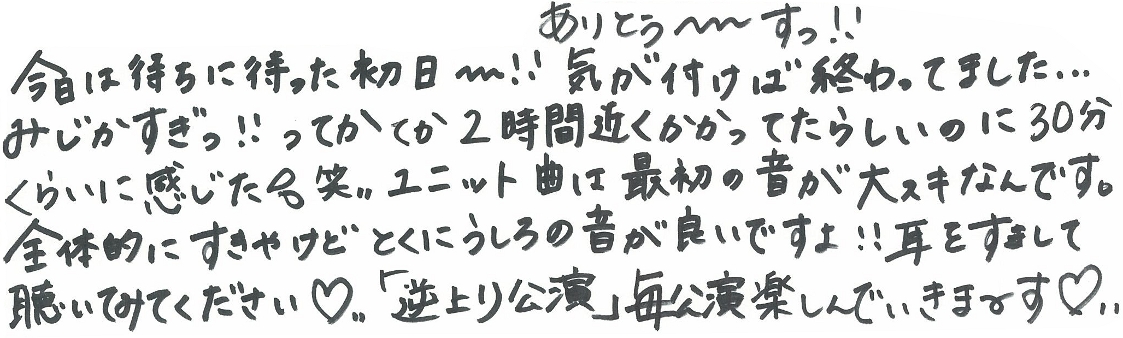 ありとぅ〜〜すっ!!
今日は待ちに待った初日〜!! 気が付けば終わってました...
みじかすぎっ!! ってかてか2時間近くかかってたらしいのに30分
くらいに感じた 笑.. ユニット曲は最初の音が大スキなんです。
全体的にすきやけどとくにうしろの音が良いですよ!! 耳をすまして
聴いてみてください♡..「逆上り公演」毎公演楽しんでいきまーす♡..